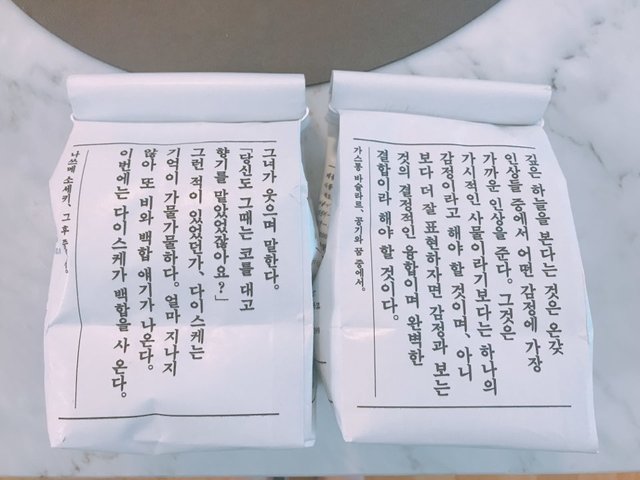 그녀가 웃으며 말한다.
「당신도 그때는 코를 대고
향기를 맡았었잖아요?」
그런 적이 있었던가, 다이스케는
기억이 가물가물하다. 얼마 지나지
않아 또 비와 백합 얘기가 나온다.
이번에는 다이스케가 백합을 사 온다.
나쓰메 소세키, 그 후 중
깊은 하늘을 본다는 것은 온갖
인상들 중에서 어떤 감정에 가장
가까운 인상을 준다. 그것은
가시적인 사물이라기보다는 하나의
감정이라고 해야 할 것이며, 아니
보다 더 잘 표현하자면 감정과 보는
것의 결정적인 융합이며 완벽한
결합이라 해야 할 것이다.
가스통 바슐라르, 공기와 꿈 중에서.